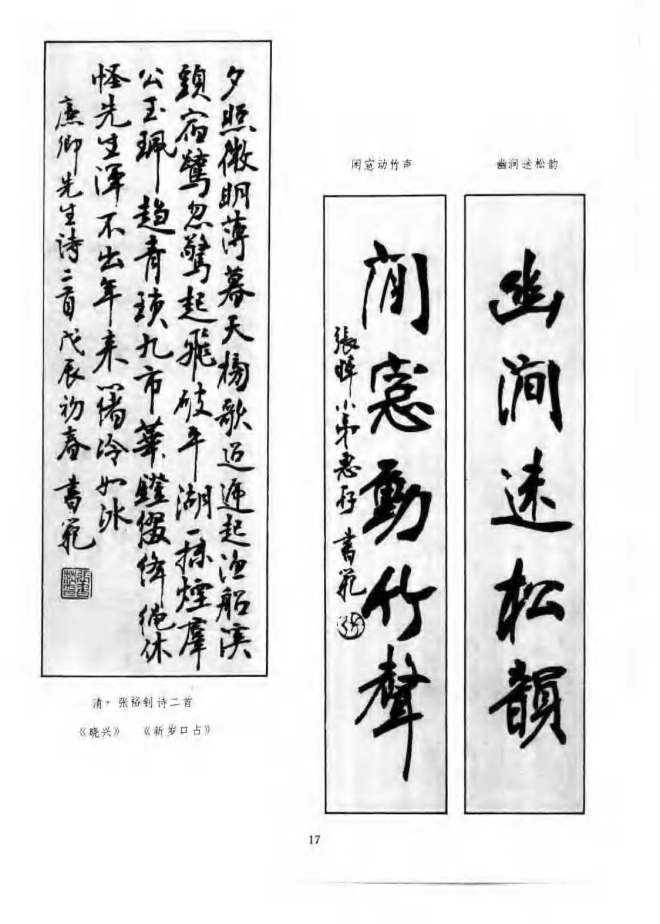 夕照微明薄暮天榜歌迢遞起漁船溪
頭宿鷺忽驚起飛破平湖一抹煙羣
公玉珮趨青瑣九市華鐙綴絳繩休
怪先生渾不出年來心緒冷如冰
廉卿先生詩二首戊辰初春書範
清·张裕钊诗二首
《晓兴》 《新岁口占》
幽涧迷松韵
幽澗迷松韻
闲窓动竹声
閒窓動竹聲
張 小弟惠存 書範
17